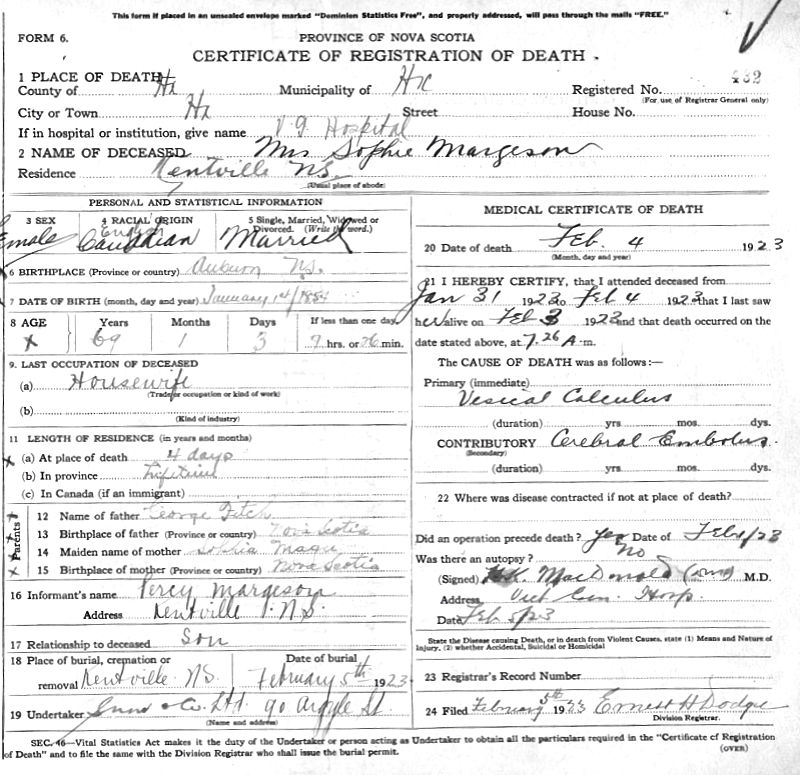 This form if placed in an unsealed envelope marked "Dominion Statistics Free", and properly addressed, will pass through the mails "FREE."
FORM 6.
PROVINCE OF NOVA SCOTIA
CERTIFICATE OF REGISTRATION OF DEATH.
1 PLACE OF DEATH
County of Hx Municipality of Hx Registered No. 432
(For use of Registrar General only)
City or Town Hx Street House No.
If in hospital or institution, give name V. G. Hospital
2 NAME OF DECEASED Mrs Sophie Margeson
Residence Kentville N.S.
(Usual place of abode)
PERSONAL AND STATISTICAL INFORMATION
3 SEX 4 RACIAL ORIGIN 5 Single, Married, Widowed or Divorced. (Write the word.)
Female English Canadian Married
6 BIRTHPLACE (Province or country) Auburn N.S.
7 DATE OF BIRTH (month, day and year) January 1st/1854
8 AGE Years Months Days If less than one day.
x 69 1 3 7 hrs. or 26 min.
9. LAST OCCUPATION OF DECEASED
(a) Housewife
(Trade or occupation or kind of work)
(b)
(Kind of industry)
11 LENGTH OF RESIDENCE (in years and months)
x (a) At place of death 4 days
(b) In province Lifetime
(c) In Canada (if an immigrant)
Parents
12 Name of father George Fitch
13 Birthplace of father (Province or country) Nova Scotia
14 Maiden name of mother Sophia
15 Birthplace of mother (Province or country) Nova Scotia
16 Informant's name Percy Margeson
Address Kentville N.S.
17 Relationship to deceased Son
18 Place of burial, cremation or removal Kentville N.S. Date of burial February 5th 1923
19 Undertaker Snow & Co. Ltd. 90 Argyle St.
(Name and address)
MEDICAL CERTIFICATE OF DEATH
20 Date of death Feb. 4 1923
(Month, day and year)
21 I HEREBY CERTIFY, that I attended deceased from
Jan 31 1923 to Feb 4 1923 that I last saw
her alive on Feb 3 1923 and that death occurred on the
date stated above, at 7.26 A.m.
The CAUSE OF DEATH was as follows:—
Primary (immediate)
Vesical Calculus
(duration) yrs mos. dys.
CONTRIBUTORY Cerebral Embolus.
(Secondary)
(duration) yrs mos. dys.
22 Where was disease contracted if not at place of death?
Did an operation precede death? Yes Date of Feb 1/23
Was there an autopsy? No
(Signed) K. MacDonald M.D.
Address Vict Gen. Hosp.
Date Feb 5/23
State the Disease causing Death, or in death from Violent Causes, state (1) Means and Nature of
Injury, (2) whether Accidental, Suicidal or Homicidal
23 Registrar's Record Number
24 Filed February 5th 1923 Ernest H Dodge
Division Registrar.
SEC. 46—Vital Statistics Act makes it the duty of the Undertaker or person acting as Undertaker to obtain all the particulars required in the "Certificate of Registration
of Death" and to file the same with the Division Registrar who shall issue the burial permit.
(OVER)